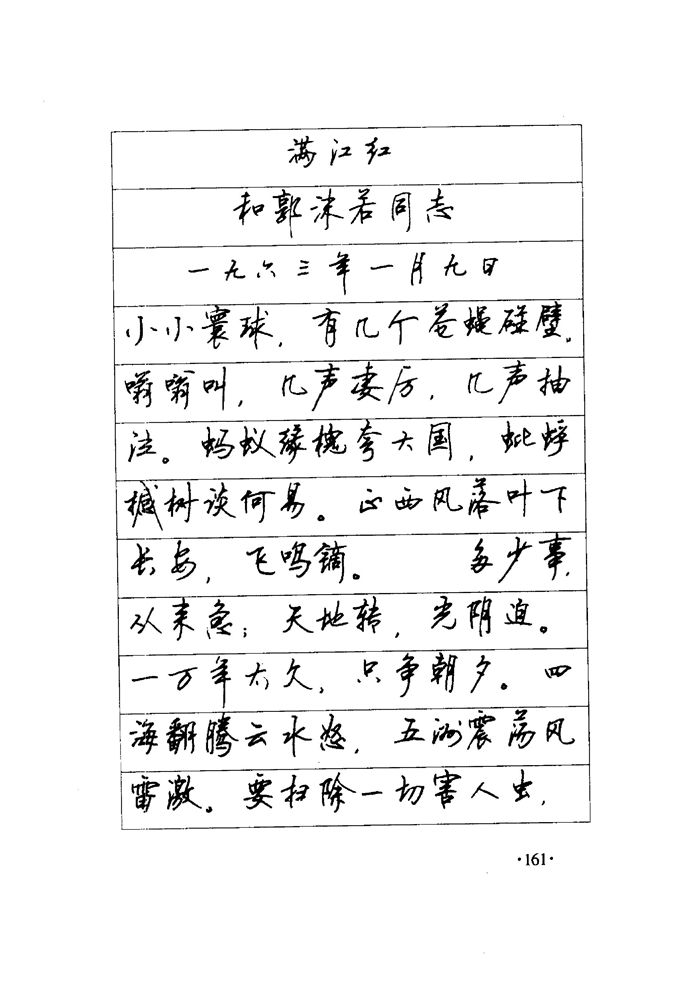 满江红
和郭沫若同志
一九六三年一月九日
小小寰球，有几个苍蝇碰壁。
嗡嗡叫，几声凄厉，几声抽
泣。蚂蚁缘槐夸大国，蚍蜉
撼树谈何易。正西风落叶下
长安，飞鸣镝。 多少事，
从来急；天地转，光阴迫。
一万年太久，只争朝夕。四
海翻腾云水怒，五洲震荡风
雷激。要扫除一切害人虫，
·161·